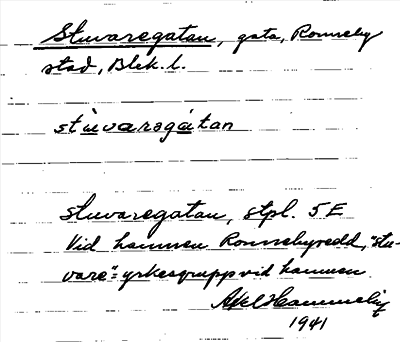 Stuvaregatan, gata, Ronneby
stad, Blek. l.
stùvaregátan
Stuvaregatan, stpl. 5 E
Vid hamnen Ronnebyredd, "stu-
vare" = yrkesgrupp vid hamnen.
Axel Hammelin
1941